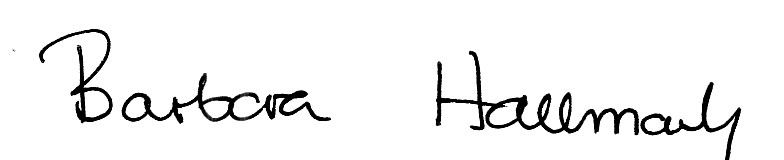 Barbara Hallmark